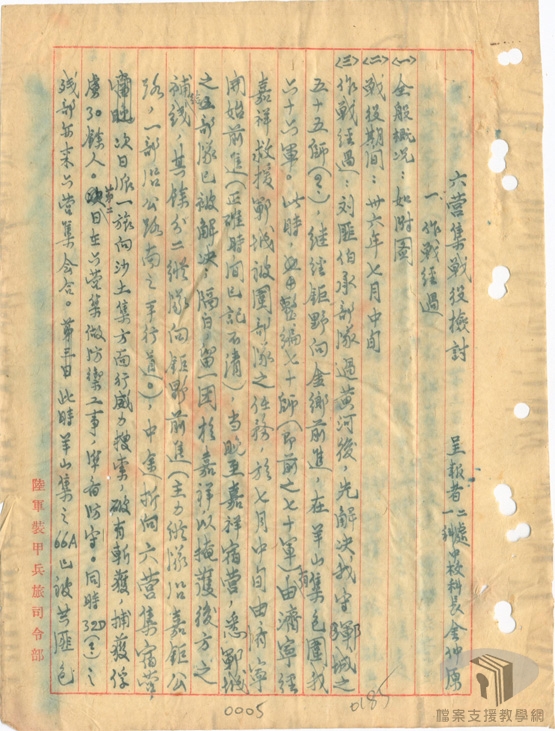 六營集戰役檢討
呈報者 二處一科 中校科長 金仲原
一、作戰經過
㈠全般概況：如附圖
㈡戰役期間：卅六年七月中旬
㈢作戰經過：刘匪伯承部隊過黃河後，先解决我守鄆城之
五十五師(欠)，继經鉅野向金鄉前進，在羊山集包圍我
六十六軍。此時，整編七十師(即前之七十軍)由濟寧經
嘉祥救援鄆城被圍部隊之任務，於七月中旬由濟寧
開始前進(正確時間已記不清)，当晚至嘉祥宿营，悉鄆城
之部隊已被解决，隔日留一團於嘉祥以掩護後方之
補給，其餘分二縱隊向鉅野前進(主力縱隊沿嘉鉅公
路，一部沿公路南之平行道。)，中途折向六营集宿营，
次日派一旅向沙土集方面行威力搜索，破有斬獲，捕獲俘
虜了0餘人。第二日在六营集做防禦工事，準备防守。同時32D(欠)之
残部亦来六营集会合。第三日此時羊山集之66A已被共匪包
陸軍裝甲兵旅司令部
0005
0185
檔案支援教學網